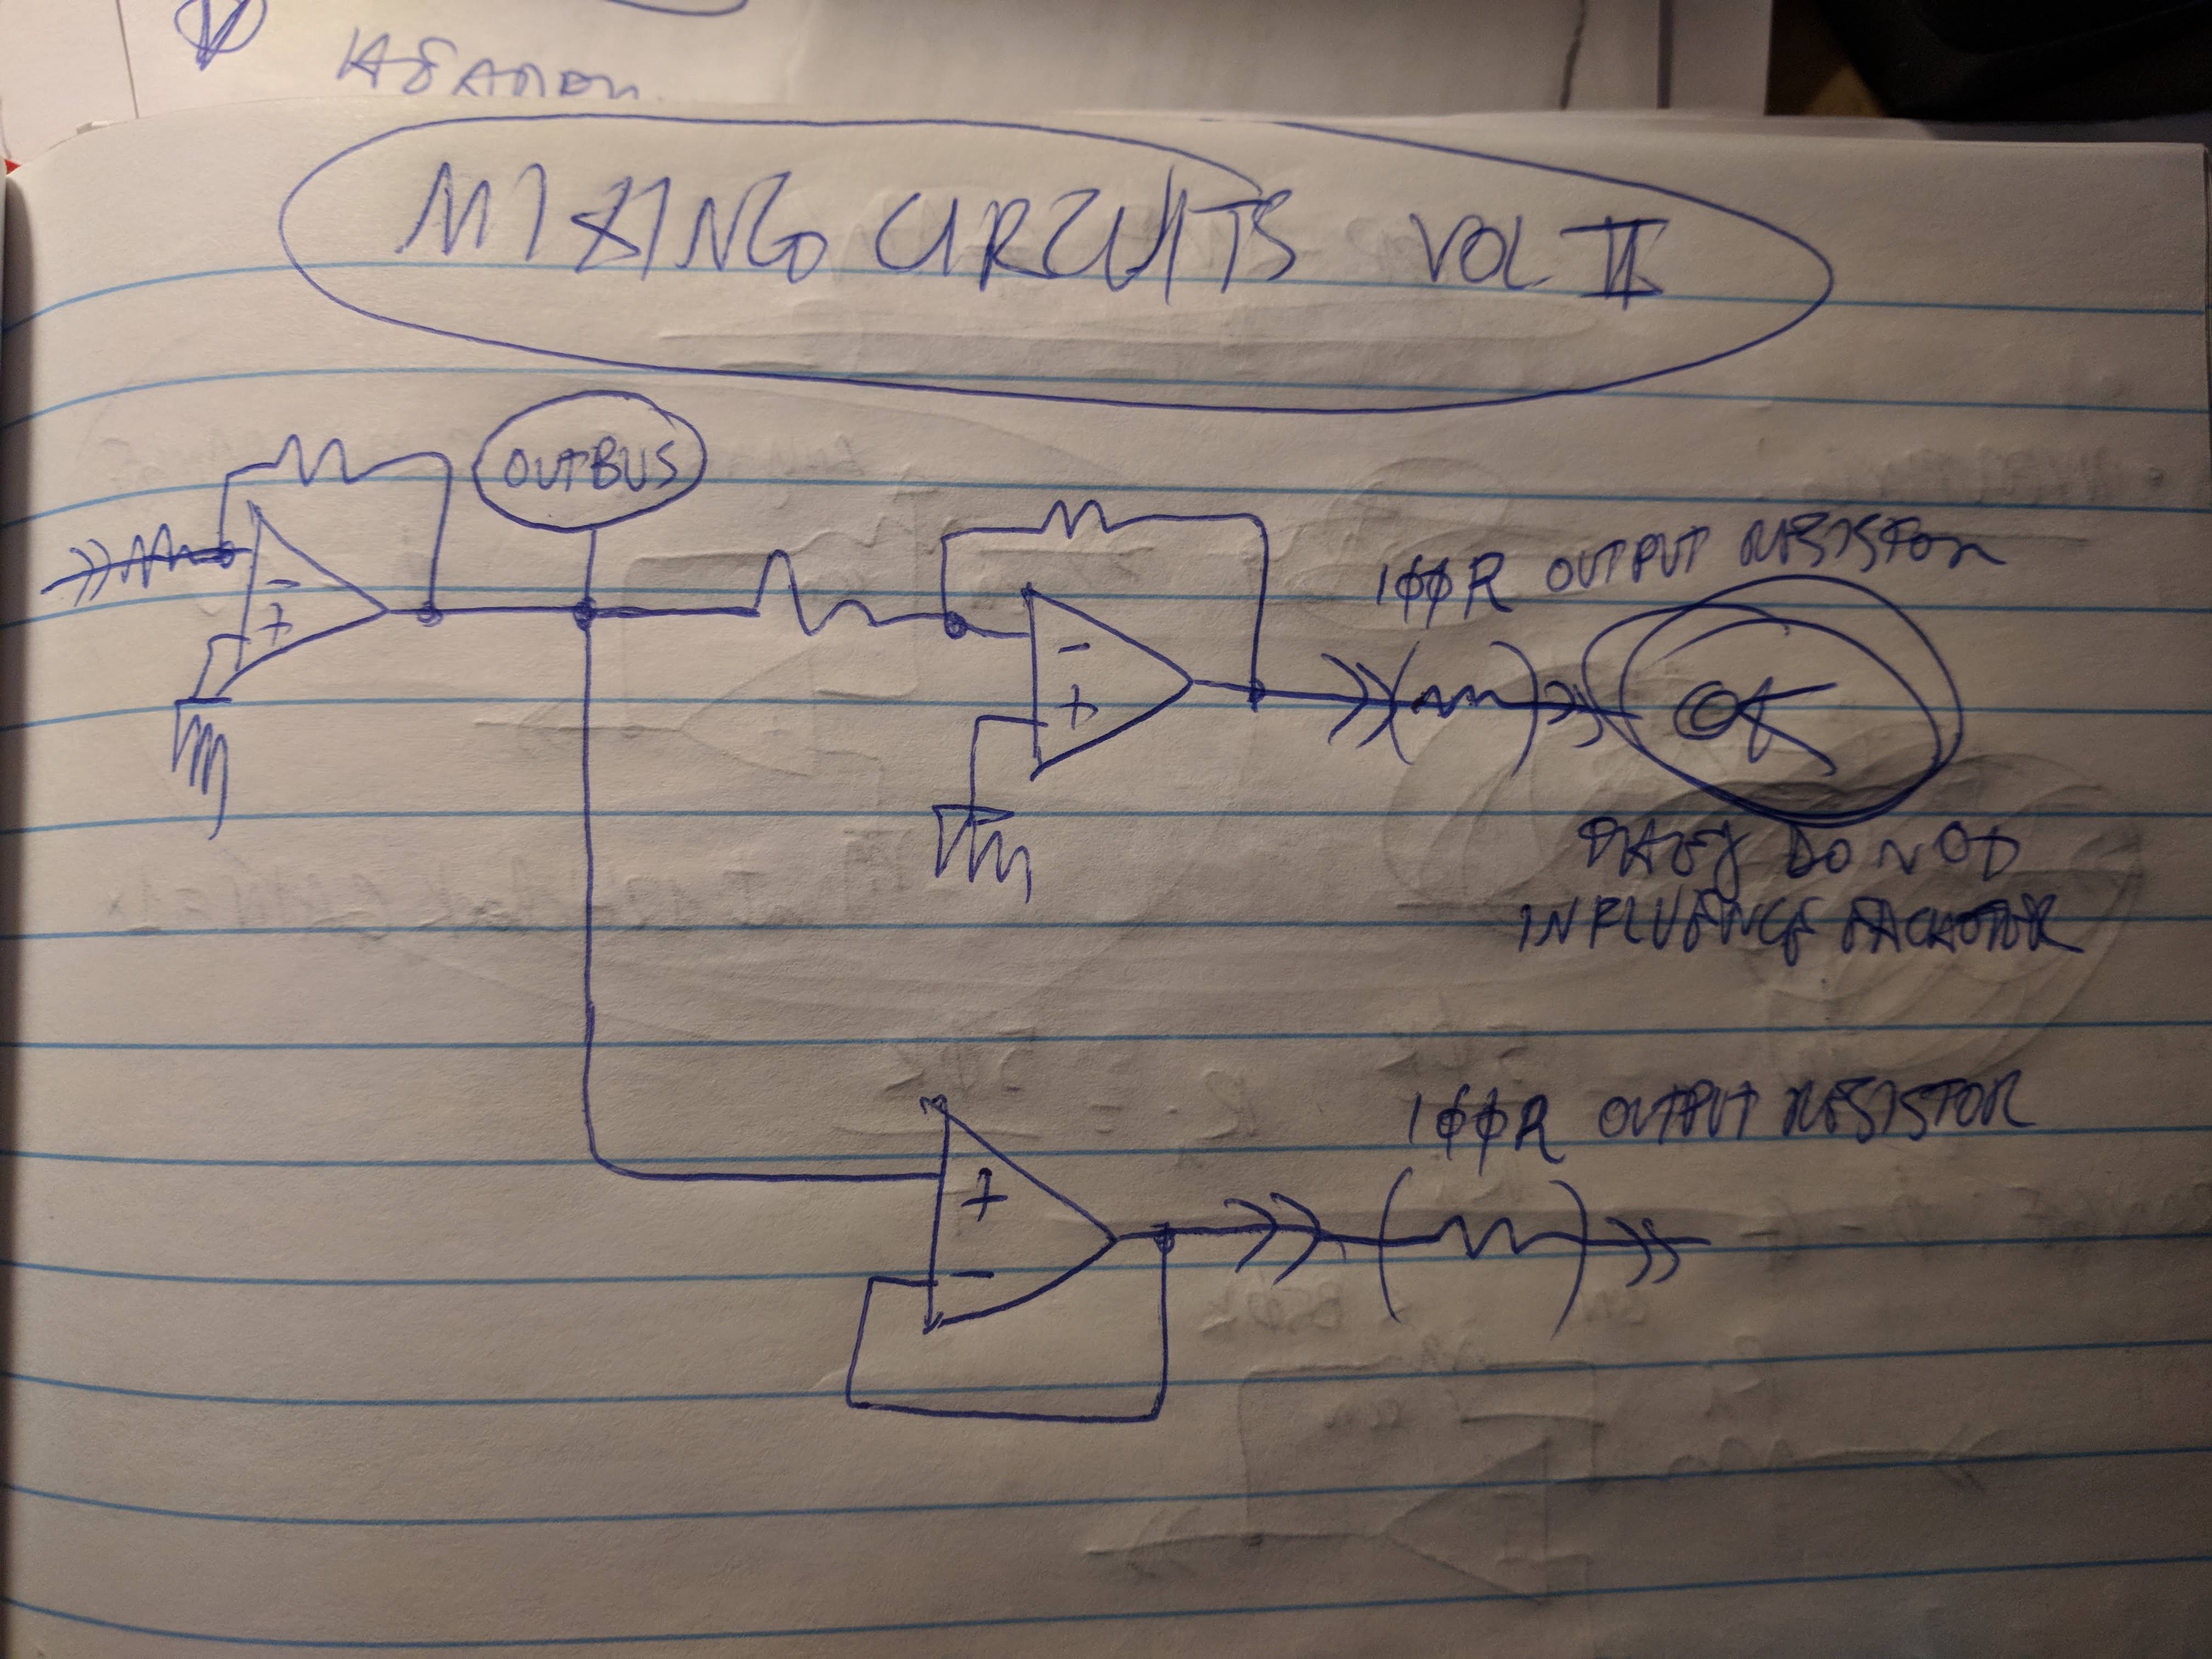 MIXING CIRCUITS VOL II
OUTBUS
-
+
-
+
1ØØR OUTPUT RESISTOR
OK
THEY DO NOT
INFLUENCE EACHOTHER
1ØØR OUTPUT RESISTOR
+
-